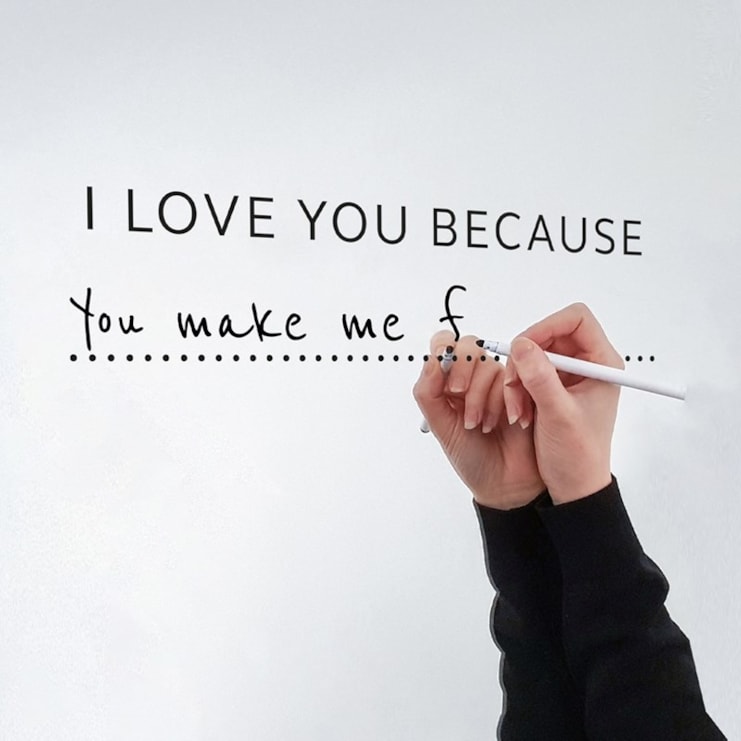 I LOVE YOU BECAUSE
You make me f